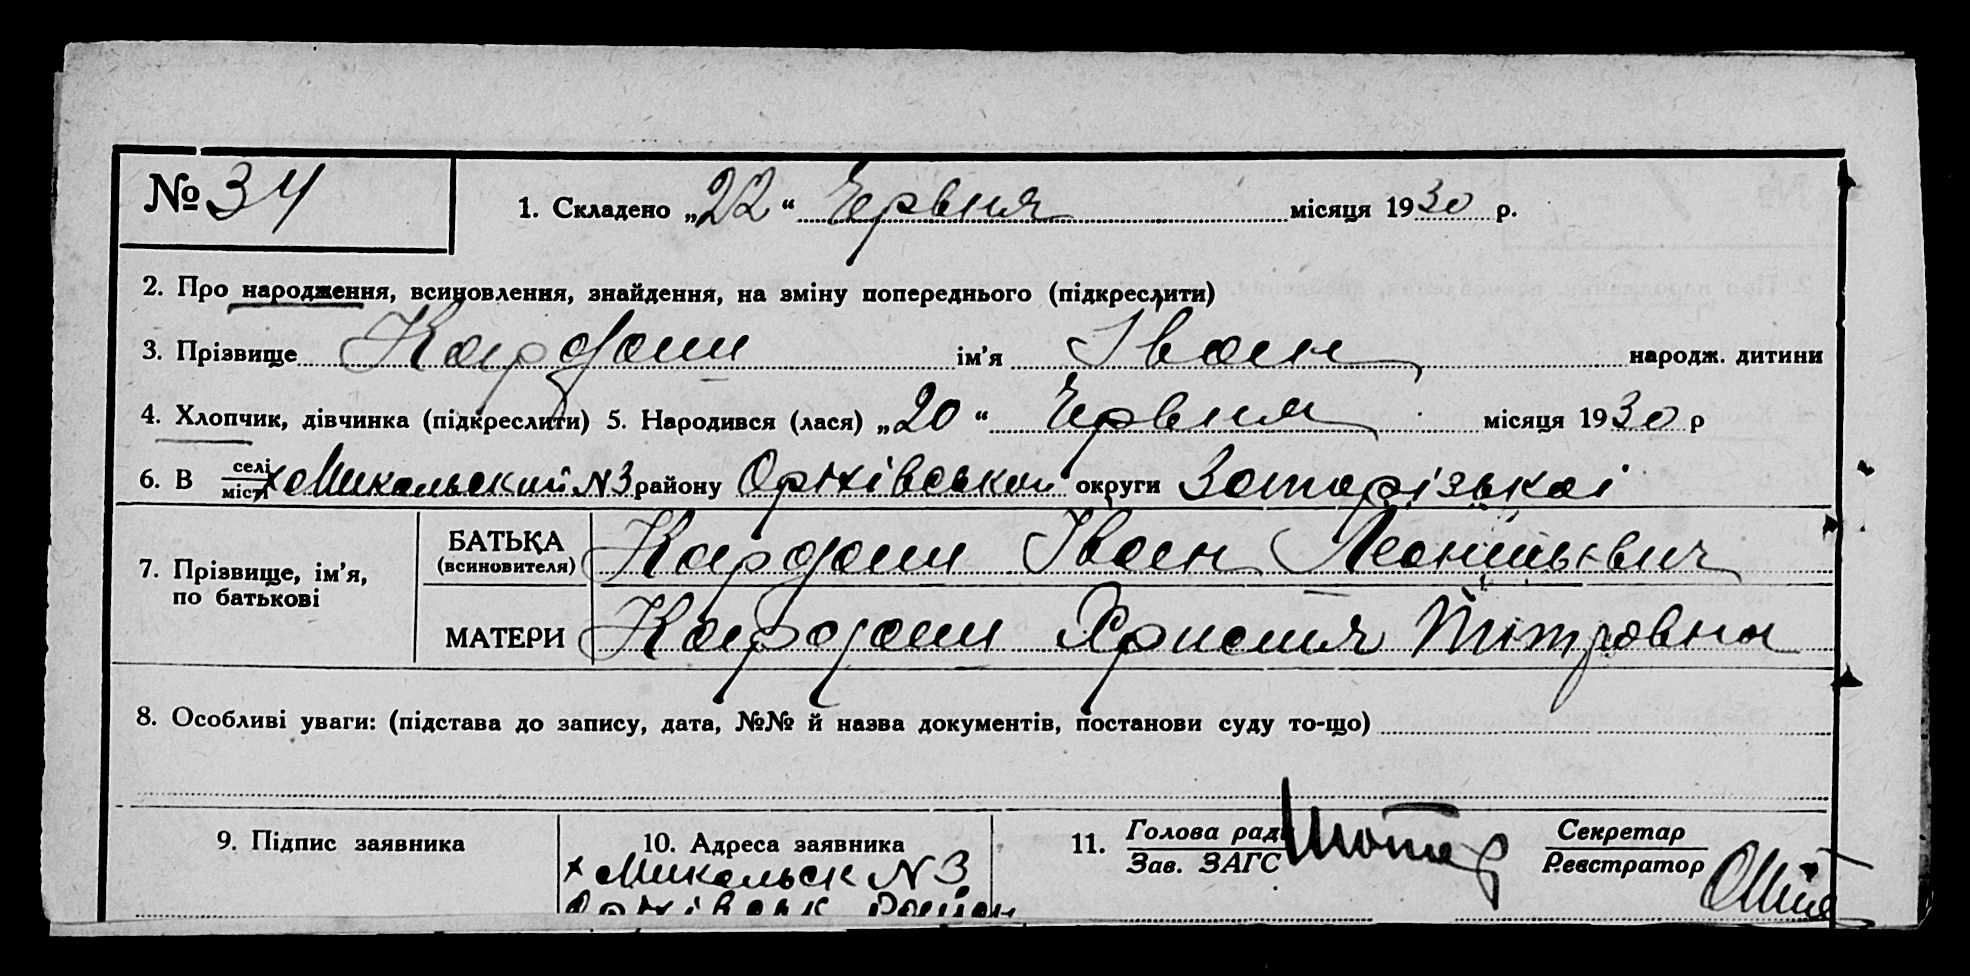 № 34
1. Складено „22“ Червня місяця 1930 р.
2. Про народження, всиновлення, знайдення, на зміну попереднього (підкреслити)
3. Прізвище Кардаш ім’я Іван народж. дитини
4. Хлопчик, дівчинка (підкреслити) 5. Народився (лася) „20“ Червня місяця 1930 р
6. В селі місті х Микольский N3 району Оріхівському округи Запорізькоі
7. Прізвище, ім’я, по батькові
БАТЬКА (всиновителя) Кардаш Іван
МАТЕРИ Кардаш Христя
8. Особливі уваги: (підстава до запису, дата, №№ й назва документів, постанови суду то-що)
9. Підпис заявника
10. Адреса заявника
х Микольск N 3
11. Голова ради
Зав. ЗАГС
Секретар
Реєстратор